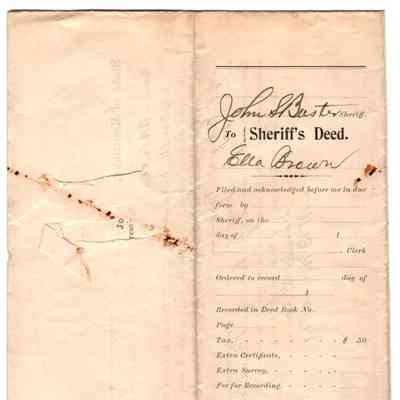 John S Buster Sheriff.
To Sheriff's Deed.
Ella Brown
Filed and acknowledged before me in due
form by
Sheriff, on the
day of 1
, Clerk
Ordered to record day of
1
Recorded in Deed Book No.
Page
Tax, - - - - - - - $ .50
Extra Certificate, - - - -
Extra Survey, - - - -
Fee for Recording, - - - -